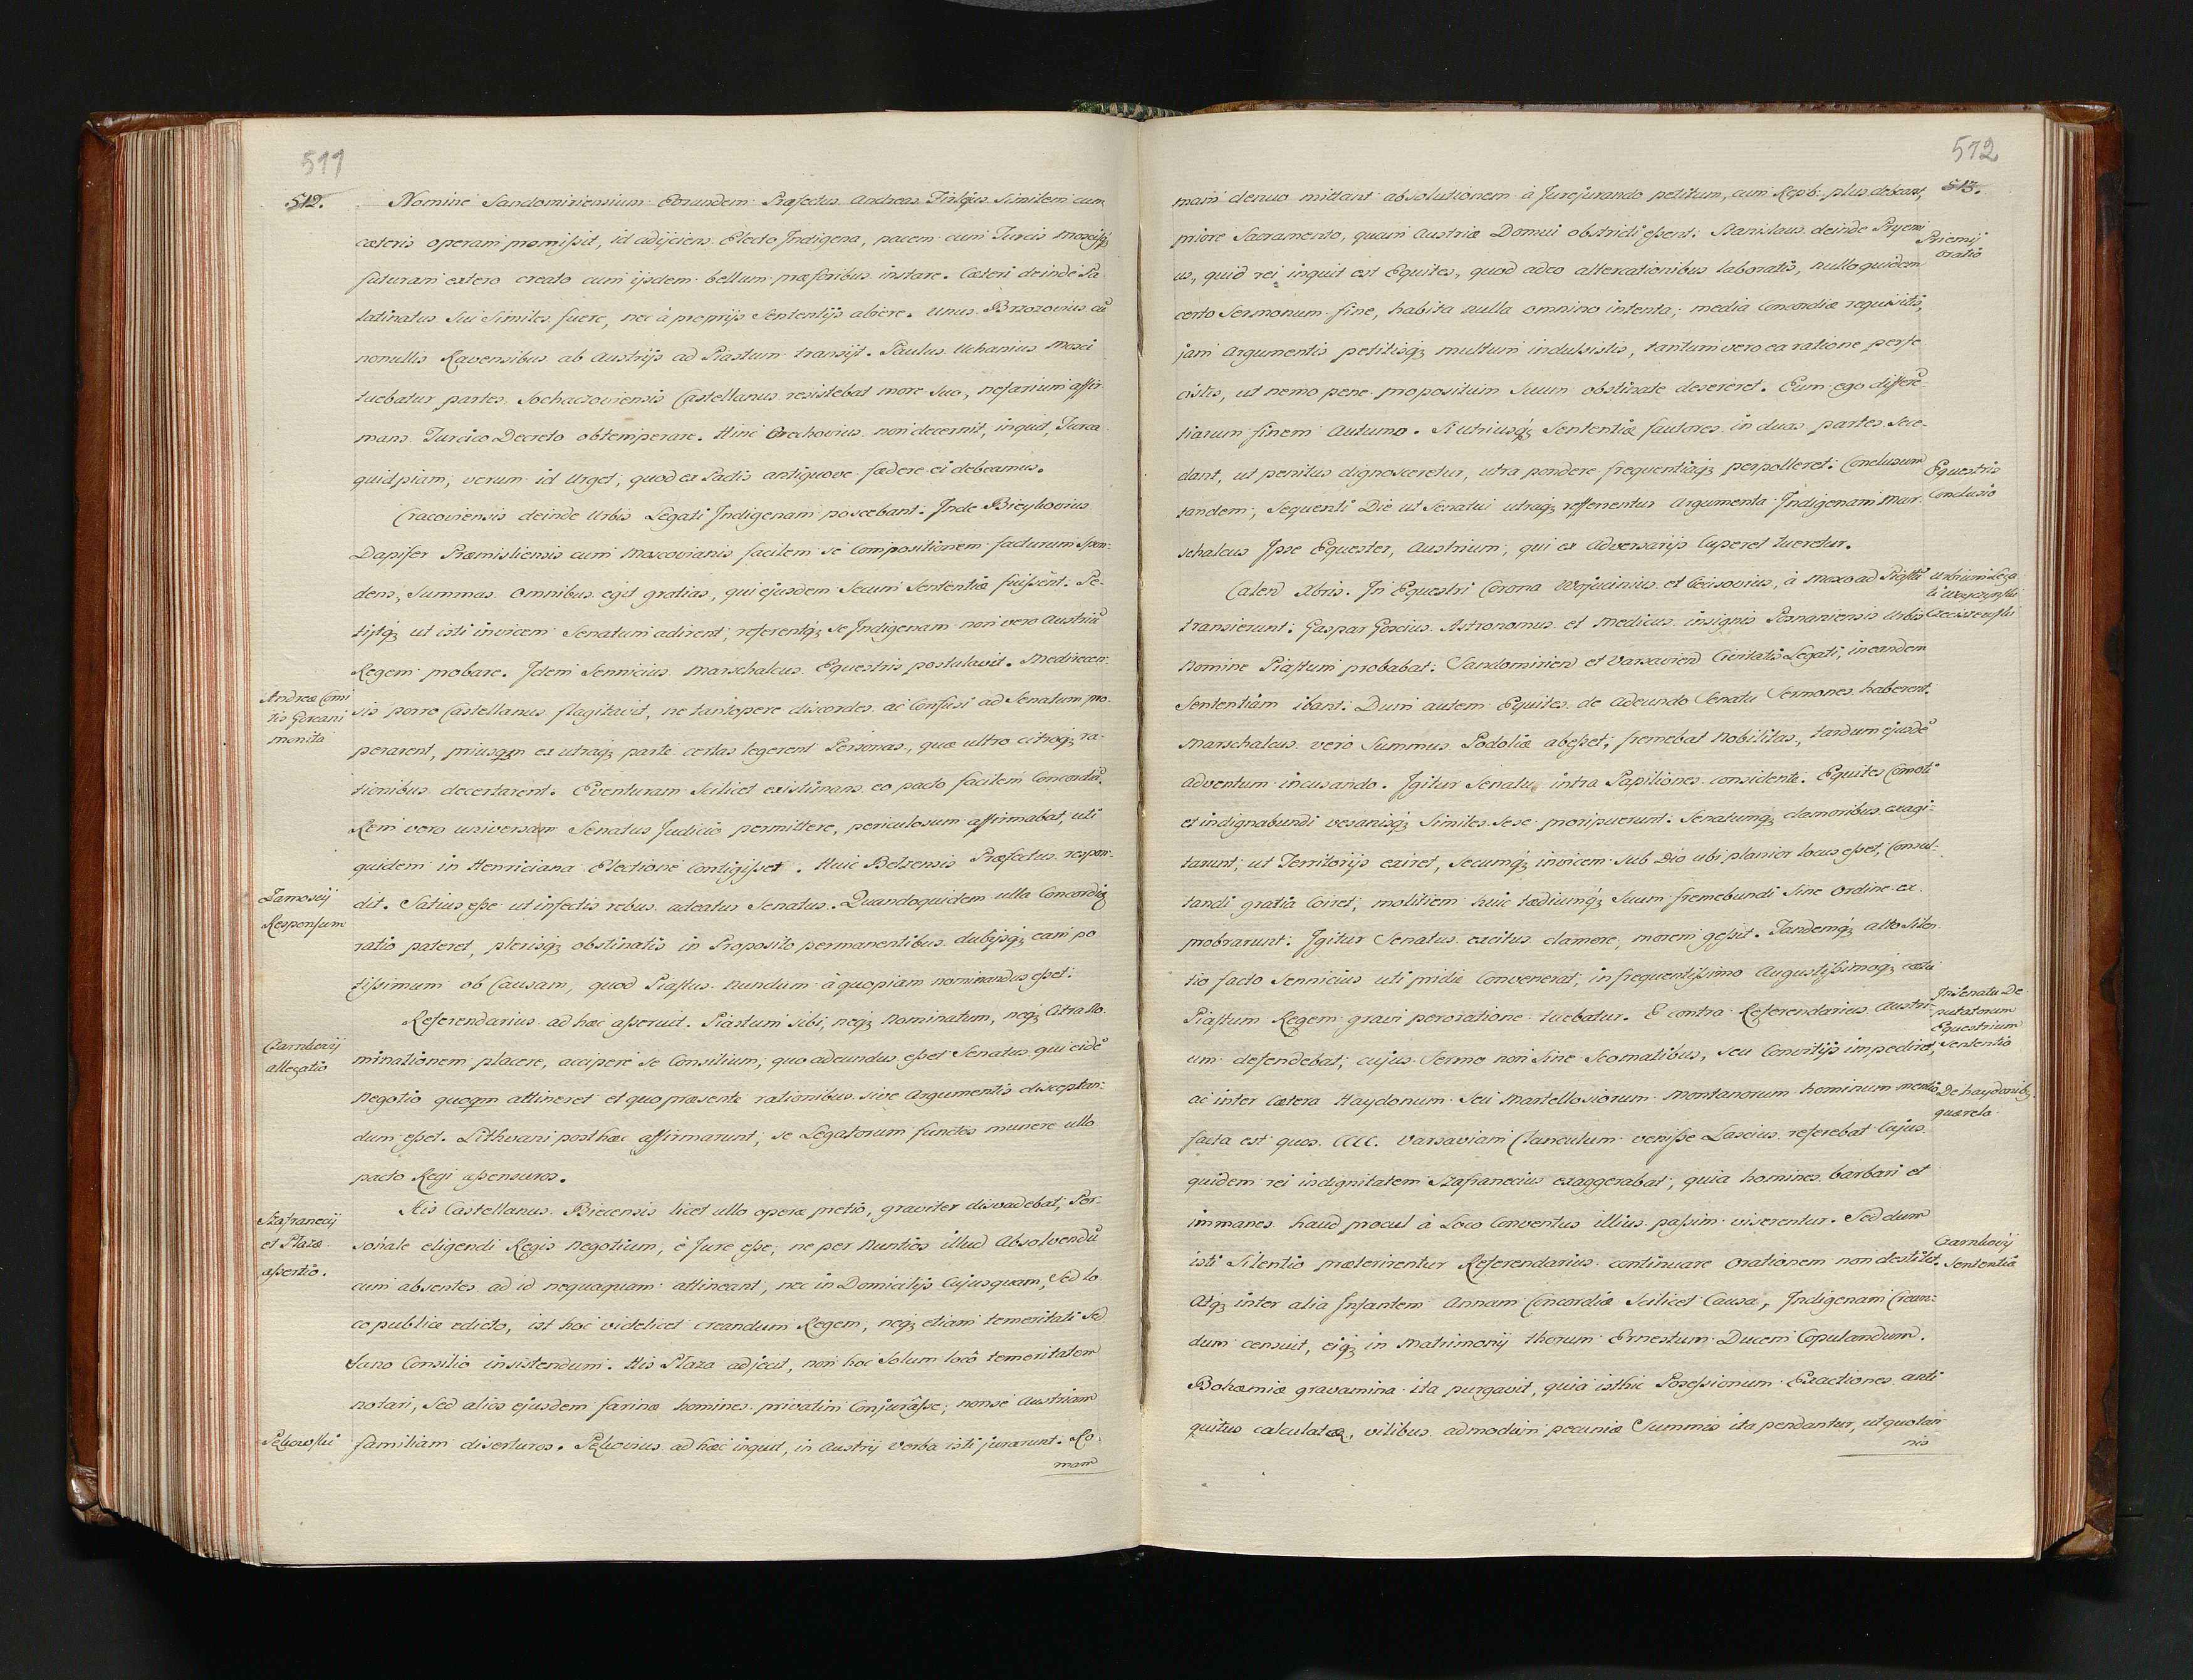 511
512.
Nomine Sandomiriensium Eorundem Præfectus Andreas Firlejus Similem cum
cæteris operam promisit, id adijciens. Electo Indigena, pacem cum Turcis Moscisq;
futuram extero creato cum ijsdem bellum præ foribus instare. Cæteri deinde Pa-
latinatus sui Similes fuere, nec à proprijs Sententijs abiere. Unus Brzozovius cũ
nonullis Ravensibus ab Austrijs ad Piastum transijt. Paulus Uchanius Mosci
tuebatur partes. Sochaczoviensis Castellanus resistebat more suo, nefarium affir-
mans Turcico Decreto obtemperare. Hinc Orechovius non decernit, inquit, Turca
quidpiam, verum id Urget, quod ex Pactis antiquove fædere ei debeamus.
Cracoviensis deinde Urbis Legati Indigenam poscebant. Inde Bieykovius
Dapifer Præmisliensis cum Moscovianis facilem se Compositionem facturum spon-
dens, Summas Omnibus egit gratias, qui ejusdem Secum Sententiæ fuissent. Pe-
tijtq; ut isti invicem Senatum adirent, referentq; se Indigenam non vero Austriũ
Regem probare. Idem Sennicius Marschalcus Equestris postulavit. Medirecen-
Andreæ Comi
tis Gorcani
monita
sis porro Castellanus flagitavit, ne tantopere discordes ac Confusi ad Senatum pro-
perarent, priusqm ex utraq; parte certas legerent Personas, quæ ultro citroq; ra-
tionibus decertarent. Eventuram Scilicet existimans eo pacto facilem Concordiã.
Rem vero universam Senatus Judicio permittere, periculosum affirmabat, uti
quidem in Henriciana Electione Contigisset. Huic Belzensis Præfectus respon-
Zamoscij
Responsum
dit. Satius esse ut infectis rebus adeatur Senatus. Quandoquidem ulla Concordiæ
ratio pateret, plerisq; obstinatis in Proposito permanentibus dubijsq; eam po
tissimum ob Causam, quod Piastus nundum à quopiam nominandus esset.
Referendarius ad hæc asseruit. Piastum sibi, neq; Nominatum, neq; Citra No-
Czarnkovij
allegatio
minationem placere, accipere se Consilium, quo adeundus esset Senatus qui eidẽ
Negotio quoqm attineret et quo præsente rationibus sive Argumentis disceptan-
dum esset. Lithvani post hæc affirmarunt, se Legatorum functos munere ullo
pacto Regi assensuros.
Szafranecij
et Plazæ
assertio.
His Castellanus Biecensis licet ullo operæ pretio, graviter disvadebat, Per-
sonale eligendi Regis Negotium, è Jure esse, ne per Nuntios illud Absolvendũ
cum absentes ad id nequaquam attineant, nec in Domicilijs Cujusquam, Sed lo
co publicæ edicto, ist hoc videlicet creandum Regem, neq; etiam temeritati Sed
Sano Consilio insistendum. His Plaza adjecit, non hoc solum locô temeritatem
notari, Sed alios ejusdem farinæ homines privatim Conjurâsse; non se Austriam
Pękowski
familiam diserturos. Pękovius ad hæc inquit, in Austrij verba isti jurarunt. Ro-
mam
512
513.
mam denuo mittant absolutionem à Jurejurando petitum, cum Repb. plus debeant,
Priemij
oratio
priore Sacramento, quam Austriæ Domui obstricti essent. Stanislaus deinde Pryemi
us, quid rei inquit est Equites, quod adeo altercationibus laboratis, nullo quidem
certo Sermonum fine, habita nulla omnino intenta; media Concordiæ requisitis,
jam Argumentis petitisq; multum indulsistis, tantum vero ea ratione perfe
cistis, ut nemo pene propositum suum obstinate desereret. Eum ego differẽ-
tiarum finem Autumo. Si utriusq; Sententiæ fautores in duas partes Sece-
dant, ut penitus dignosceretur, utra pondere frequentiaq; perpolleret. Conclusum
Equestris
Conclusio
tandem, Sequenti Die ut Senatui utraq; refferentur Argumenta Indigenam Mar-
schalcus Ipse Equester, Austrium, qui ex Adversarijs Cuperet tueretur.
Urbium Lega
ti Woyczynski
Ceciszewski
Calend Xbris. In Equestri Corona Wojucinius et Cecisovius, à Moxo ad Piastũ
transierunt. Gaspar Goscius Astronomus et Medicus insignis Posnaniensis Urbis
Nomine Piastum probabat. Sandomirien et Varsavien Civitatis Legati, in eandem
Sententiam ibant. Dum autem Equites de adeundo Senatu Sermones haberent.
Marschalcus vero Summus Podoliæ abesset, fremebat Nobilitas, tardum ejusdẽ
adventum incusando. Igitur Senatu intra Papiliones considente. Equites Comoti
et indignabundi vesanisq; Similes sese proripuerunt. Senatumq; clamoribus exagi-
tarunt, ut Territorijs exiret, Secumq; invicem sub Dio ubi planior locus esset, Consul-
tandi gratia Coiret, molitiem huic tædiumq; Suum fremebundi sine Ordine ex-
probrarunt. Igitur Senatus excitus clamore, morem gessit. Tandemq; alto Silen
tio facto Sennicius uti pridie Convenerat, in frequentissimo Augustissimoq; cætu
In Senatu De-
putatorum
Equestrium
Sententio
Piastum Regem gravi peroratione tuebatur. E contra Referendarius Austri-
um defendebat; cujus Sermo non Sine Scomatibus, seu Convitijs impediret,
De haydonib;
quærela.
ac inter Cætera Haydonum Seu Martellosiorum Montanorum hominum mentio
facta est quos CCCC. Varsaviam Clanculum venisse Lascius referebat Cujus
quidem rei indignitatem Szafranecius exaggerabat, quia homines barbari et
immanes haud procul à Loco Conventus illius passim viserentur. Sed dum
Czarnkovij
Sententiã
isti Silentio præterirentur Referendarius continuare Orationem non destitit.
Atq; inter alia Infantem Annam Concordiæ Scilicet Causa, Indigenam Crean-
dum censuit, eiq; in Matrimonij thorum Ernestum Ducem Copulandum.
Bohæmiæ gravamina ita purgavit, quia isthic Possessionum Exactiones anti
quitus calculatæ, vilibus admodum pecuniæ Summis ita pendantur, ut quotan
nis